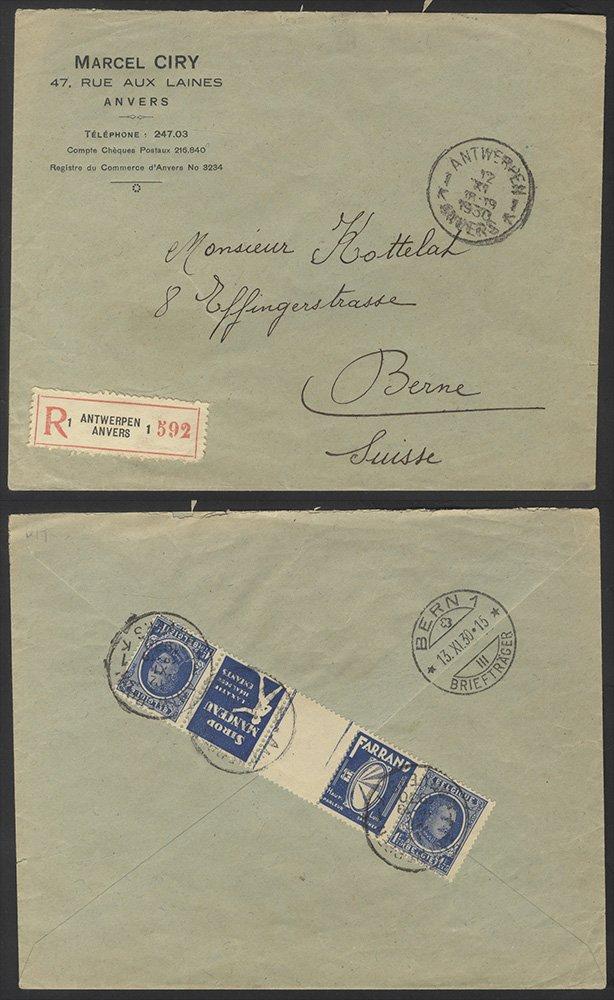 MARCEL CIRY
47, RUE AUX LAINES
ANVERS
TÉLÉPHONE : 247.03
Compte Chèques Postaux 216.840
Registre du Commerce d'Anvers No 3234
ANTWERPEN
1 1
12
XI
18-19
1930
ANVERS
Monsieur Kottelat
8 Effingerstrasse
Berne
Suisse
R 1 ANTWERPEN
ANVERS 1 592
BERN 1
13.XI.30·15
III
BRIEFTRÄGER
SIROP
MANCEAU
ENFANTS
FARRAND
HAUT
PARLEUR
BELGIQUE
BELGIË